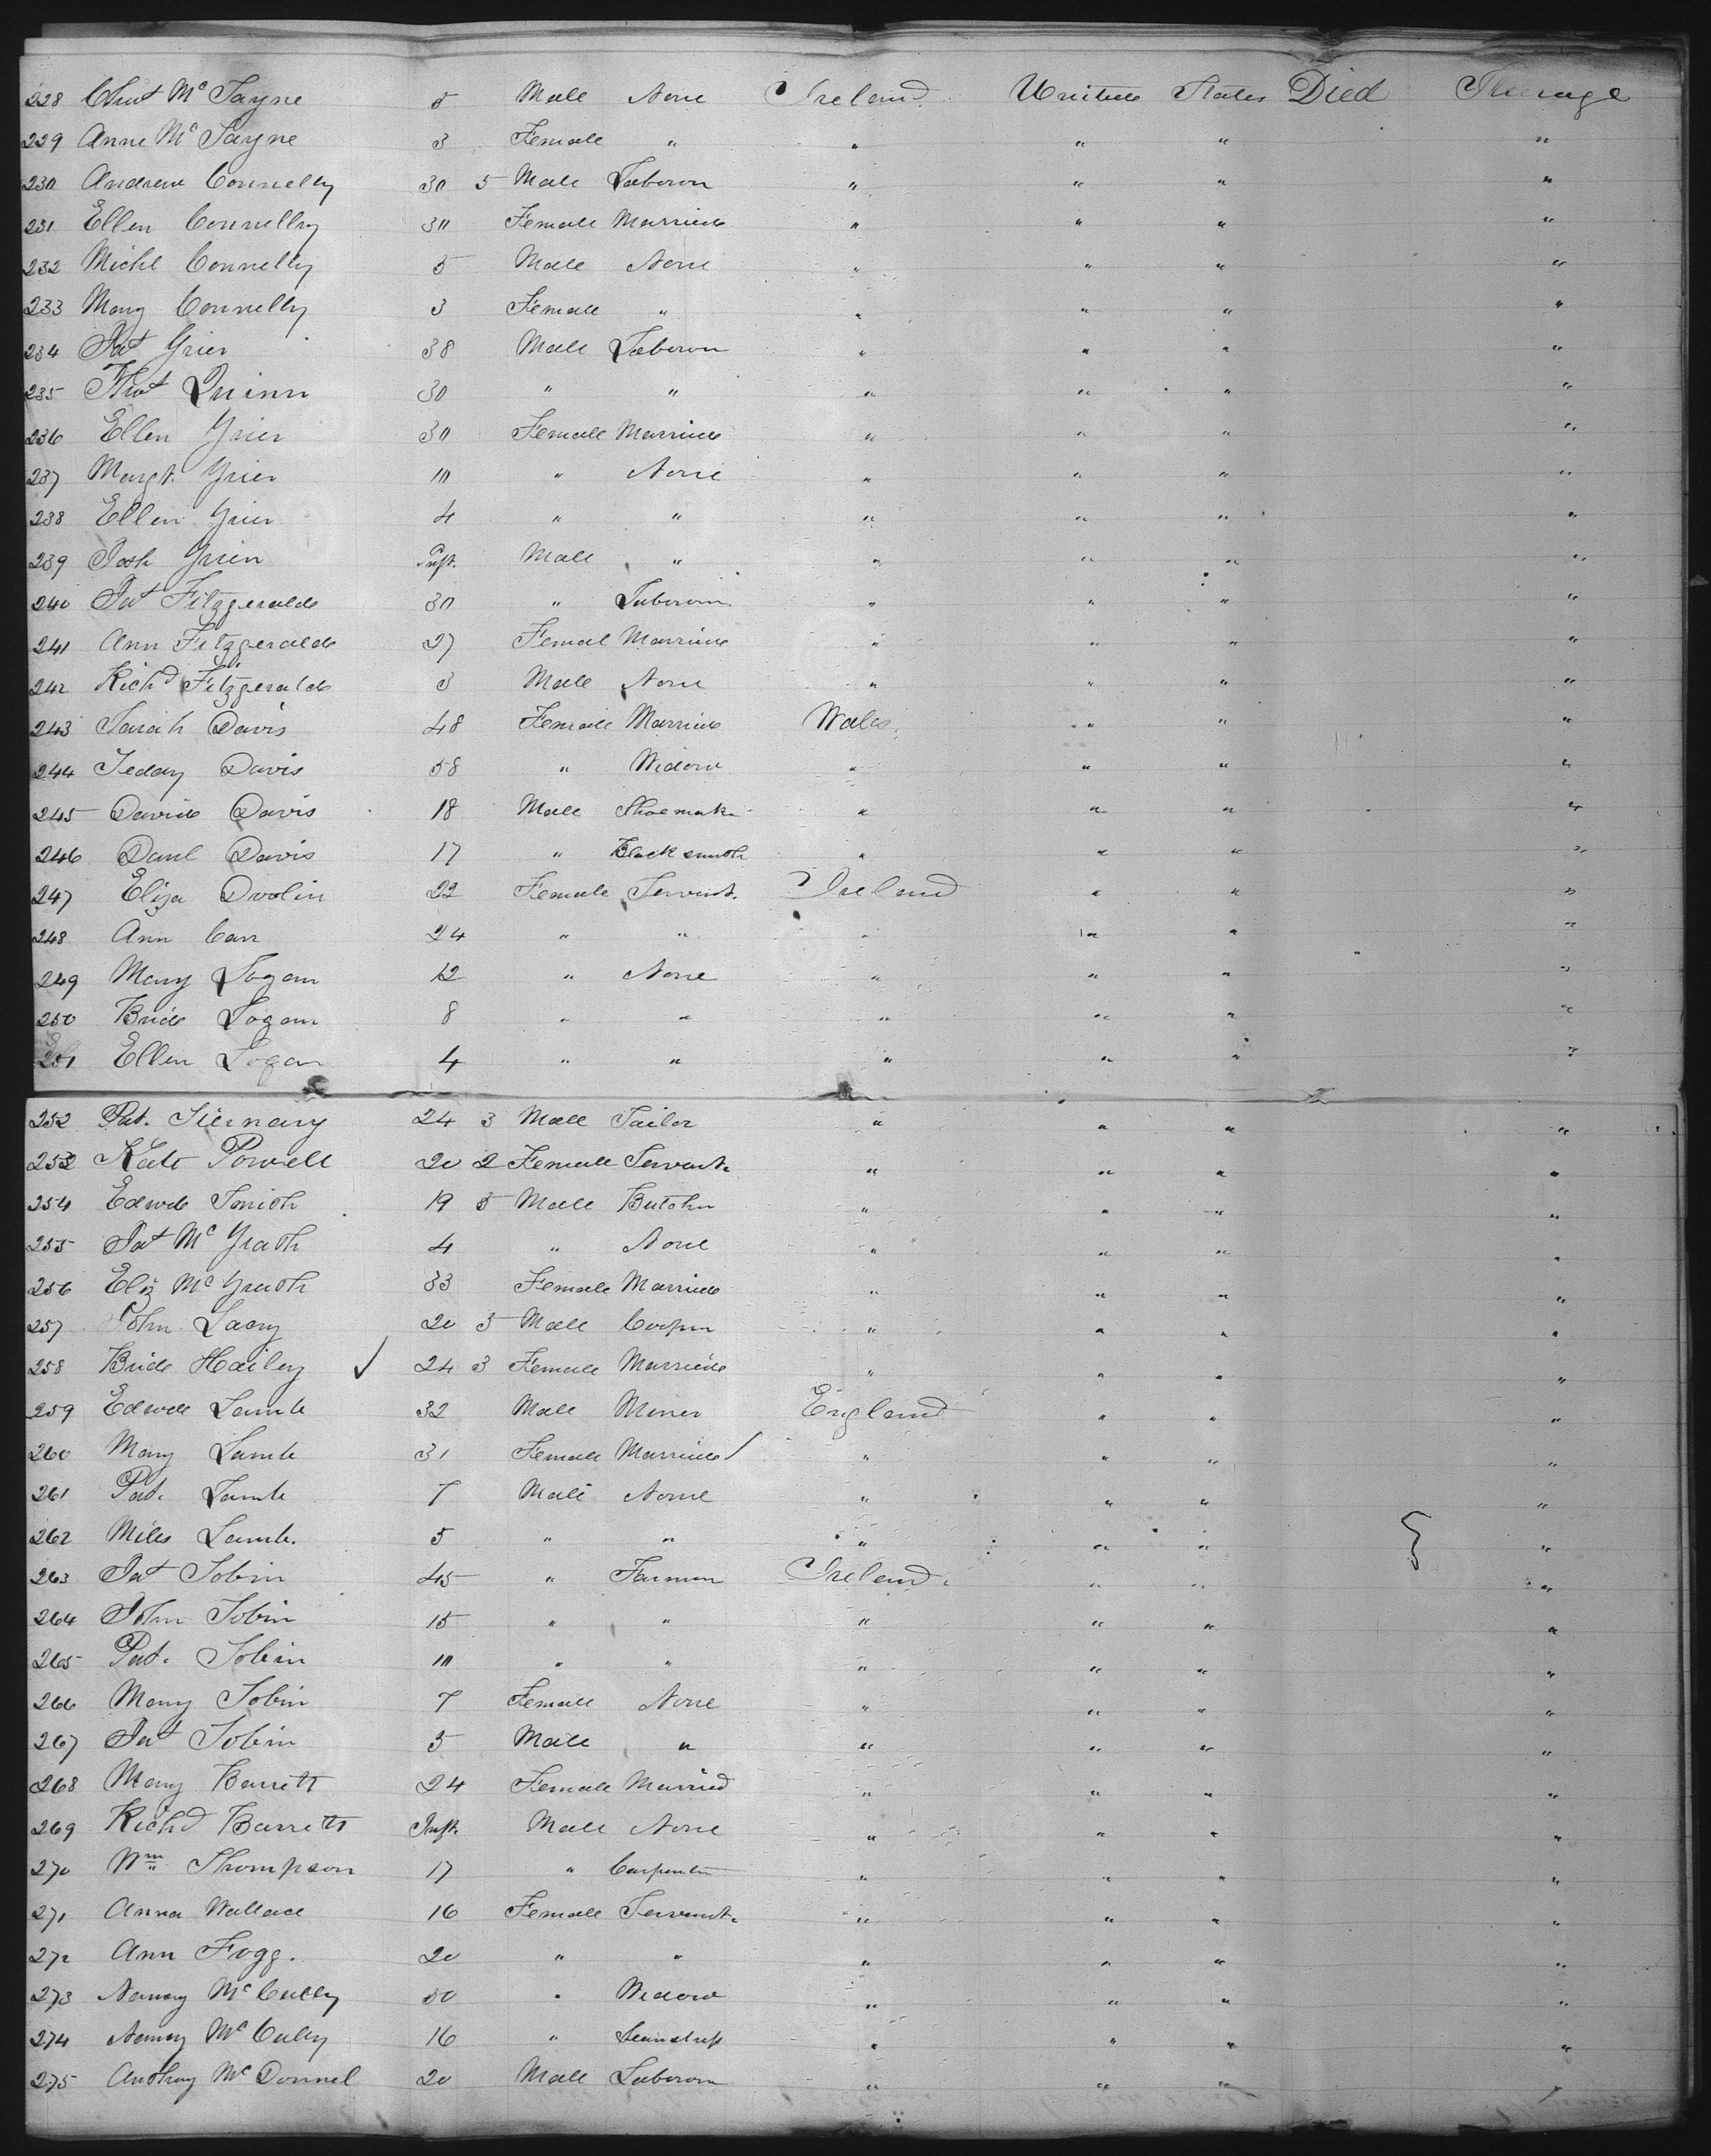 228 Chat Mc Tayne 5 Male None Ireland United States Died Steerage
229 Anne Mc Tayne 3 Female " " " " "
230 Andrew Connelly 30 5 Male Laborour " " " "
231 Ellen Connelly 30 Female Married " " " "
232 Michl Connelly 5 Male None " " " "
233 Mary Connelly 3 Female " " " " "
234 Pat Grier 38 Male Laborour " " " "
235 That Quinn 30 " " " " " "
236 Ellen Grier 30 Female Married " " " "
237 Margt. Grier 10 " None " " " "
238 Ellen Grier 4 " " " " " "
239 Josh Grier Inft. Male " " " " "
240 Pat Fitzgerald 30 " Laborour " " " "
241 Ann Fitzgerald 27 Femal Married " " " "
242 Richd Fitzgerald 3 Male None " " " "
243 Sarah Davis 48 Female Married Wales " " "
244 Jeddy Davis 58 " Widow " " " "
245 David Davis 18 Male Shoemakr " " " "
246 Danl Davis 17 " Blacksmith " " " "
247 Eliza Doolin 22 Female Servant. Ireland " " "
248 Ann Carr 24 " " " " " "
249 Mary Logan 12 " None " " " "
250 Brid Logan 8 " " " " " "
251 Ellen Logan 4 " " " " " "
252 Pat. Tiernary 24 3 Male Tailor " " " "
253 Kate Powell 20 2 Female Servant. " " " "
254 Edwd Smith 19 5 Male Butcher " " " "
255 Pat Mc Grath 4 " None " " " "
256 Eliz Mc Grath 33 Female Married " " " "
257 John Lacny 20 3 Male " " " "
258 Brid Hailey ✓ 24 3 Female Married " " " "
259 Edwd Lamb 32 Male Miner England " " "
260 Mary Lamb 31 Female Married " " " "
261 Pat. Lamb 7 Male None " " " "
262 Miles Lamb. 5 " " " " " "
263 Pat Tobin 45 " Farmer Ireland. " " "
264 John Tobin 15 " " " " " "
265 Pat. Tobin 10 " " " " " "
266 Mary Tobin 7 Female None " " " "
267 Pat Tobin 5 Male " " " " "
268 Mary Barrett 24 Female Married " " " "
269 Richd Barrett Inft. Male None " " " "
270 Wm Thompson 17 " Carpenter " " " "
271 Anna Wallace 16 Female Servant. " " " "
272 Ann Fogg. 20 " " " " " "
273 Nancy Mc Cully 50 " Widow " " " "
274 Nancy Mc Culy 16 " " " " "
275 Anthony Mc Donnel 20 Male Laborour " " " "